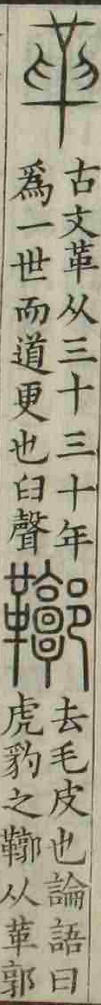 𠦶
古文革从三十三十年
爲一世而道更也𦥑聲
鞹
去毛皮也論語曰
虎豹之鞹从革郭